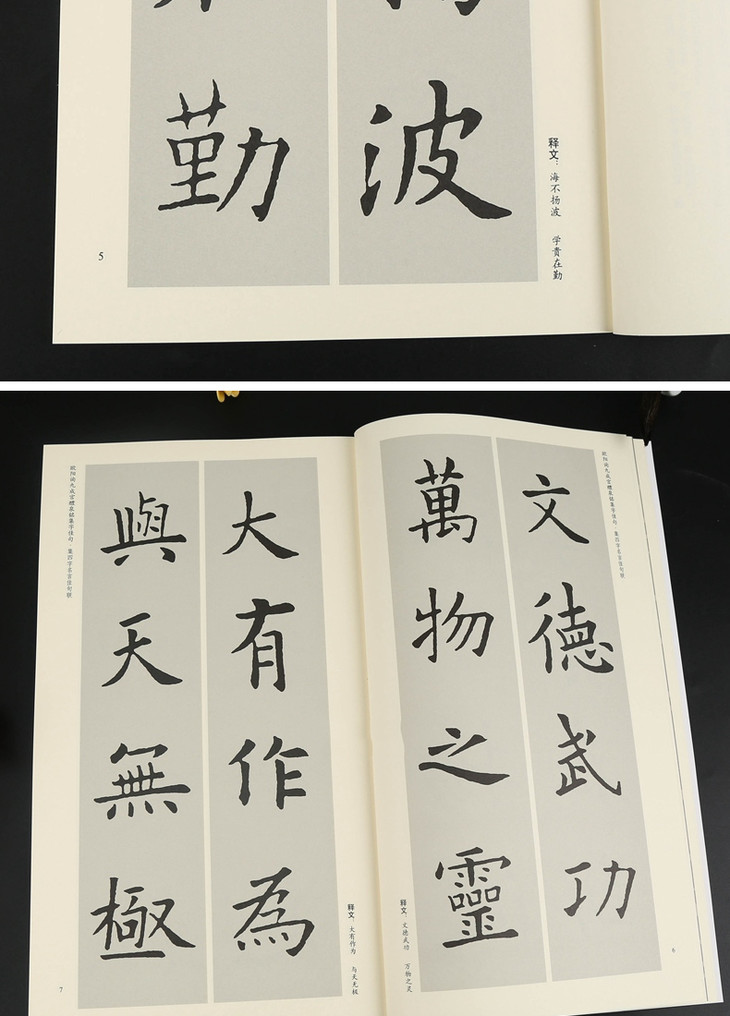 波
勤
释文：海不扬波 学贵在勤
5
欧阳询九成宫醴泉铭集字佳句·集四字名言佳句联
文德武功
萬物之靈
释文：文德武功 万物之灵
6
大有作為
與天無極
释文：大有作为 与天无极
7
欧阳询九成宫醴泉铭集字佳句 集四字名言佳句联